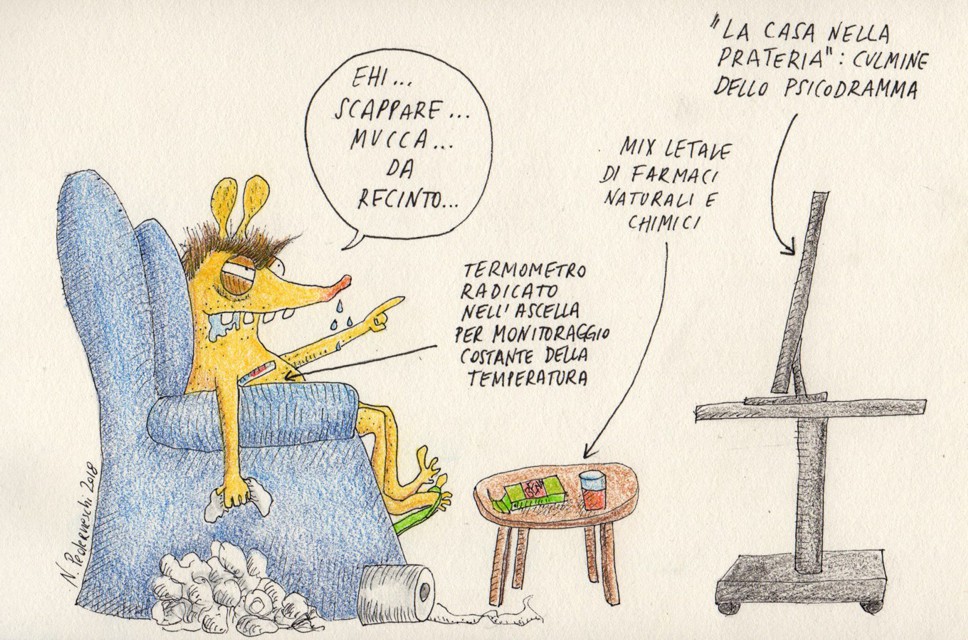 "LA CASA NELLA
PRATERIA": CULMINE
DELLO PSICODRAMMA
EHI...
SCAPPARE...
MUCCA...
DA
RECINTO...
MIX LETALE
DI FARMACI
NATURALI E
CHIMICI
TERMOMETRO
RADICATO
NELL'ASCELLA
PER MONITORAGGIO
COSTANTE DELLA
TEMPERATURA
2018